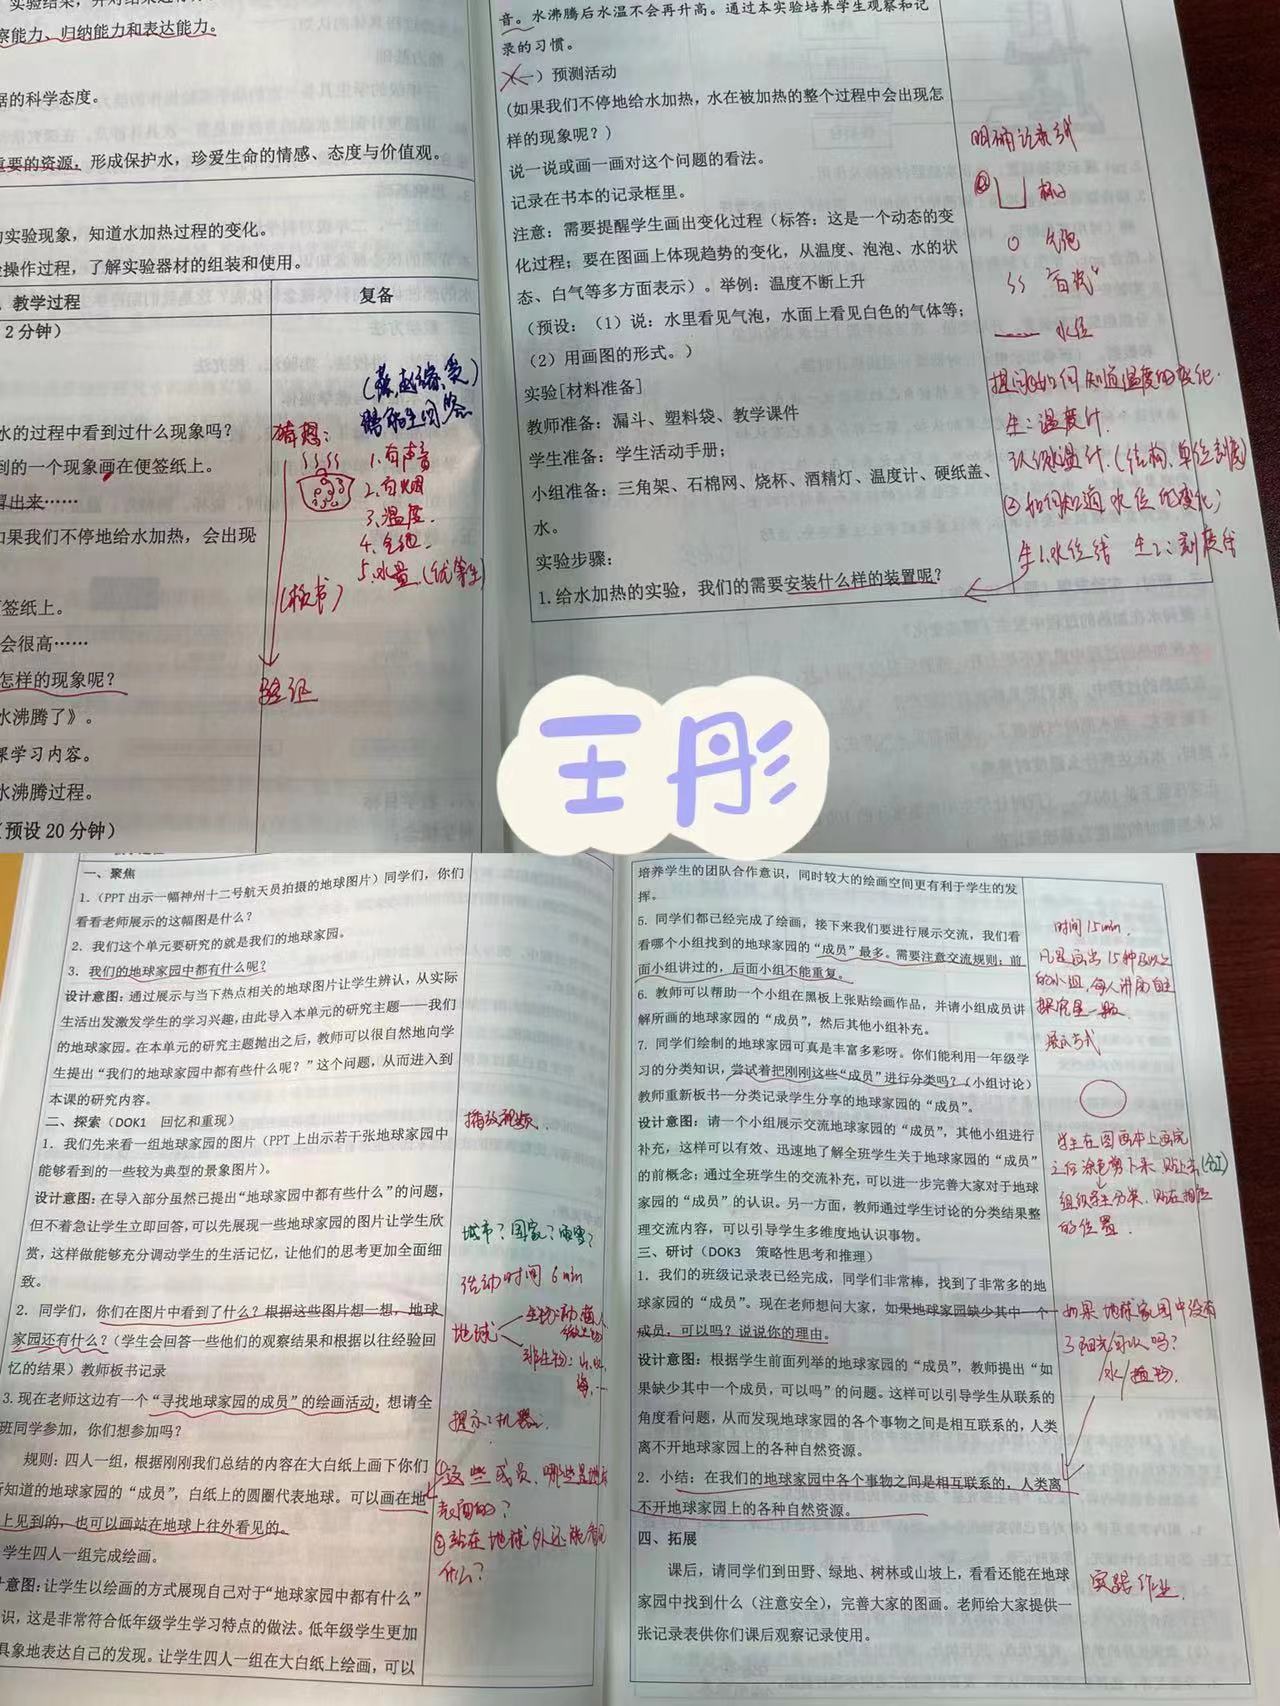 实验结果，并对结果进行
察能力、归纳能力和表达能力。
据的科学态度。
重要的资源，形成保护水，珍爱生命的情感、态度与价值观。
实验现象，知道水加热过程的变化。
操作过程，了解实验器材的组装和使用。
教学过程
复备
2分钟）
水的过程中看到过什么现象吗？
到的一个现象画在便签纸上。
冒出来……
如果我们不停地给水加热，会出现
签纸上。
会很高……
怎样的现象呢？
水沸腾了》。
课学习内容。
水沸腾过程。
（预设20分钟）
猜想：
1.有声音
2.白烟
3.温度.
4.气泡.
5.水量（优等生）
（板书）
验证
音。水沸腾后水温不会再升高。通过本实验培养学生观察和记
录的习惯。
一）预测活动
(如果我们不停地给水加热，水在被加热的整个过程中会出现怎
样的现象呢？)
说一说或画一画对这个问题的看法。
记录在书本的记录框里。
注意：需要提醒学生画出变化过程（标答：这是一个动态的变
化过程；要在图画上体现趋势的变化，从温度、泡泡、水的状
态、白气等多方面表示）。举例：温度不断上升
（预设：（1）说：水里看见气泡，水面上看见白色的气体等；
（2）用画图的形式。）
实验[材料准备]
教师准备：漏斗、塑料袋、教学课件
学生准备：学生活动手册；
小组准备：三角架、石棉网、烧杯、酒精灯、温度计、硬纸盖、
水。
实验步骤：
1.给水加热的实验，我们的需要安装什么样的装置呢？
明确记录方式
杯子
气泡
水位
提问①如何知道温度的变化.
生：温度计.
认识温度计.（结构、单位刻度）
②如何知道水位的变化；
生1.水位线 生2：刻度线
王彤
一、聚焦
1.（PPT出示一幅神州十二号航天员拍摄的地球图片）同学们，你们
看看老师展示的这幅图是什么？
2．我们这个单元要研究的就是我们的地球家园。
3．我们的地球家园中都有什么呢？
设计意图：通过展示与当下热点相关的地球图片让学生辨认，从实际
生活出发激发学生的学习兴趣，由此导入本单元的研究主题——我们
的地球家园。在本单元的研究主题抛出之后，教师可以很自然地向学
生提出“我们的地球家园中都有些什么呢？”这个问题，从而进入到
本课的研究内容。
二、探索（DOK1 回忆和重现）
1．我们先来看一组地球家园的图片（PPT上出示若干张地球家园中
能够看到的一些较为典型的景象图片）。
设计意图：在导入部分虽然已提出“地球家园中都有些什么”的问题，
但不着急让学生立即回答，可以先展现一些地球家园的图片让学生欣
赏，这样做能够充分调动学生的生活记忆，让他们的思考更加全面细
致。
2．同学们，你们在图片中看到了什么？根据这些图片想一想，地球
家园还有什么？（学生会回答一些他们的观察结果和根据以往经验回
忆的结果）教师板书记录
3.现在老师这边有一个“寻找地球家园的成员”的绘画活动，想请全
班同学参加，你们想参加吗？
规则：四人一组，根据刚刚我们总结的内容在大白纸上画下你们
所知道的地球家园的“成员”，白纸上的圆圈代表地球。可以画在地
上见到的，也可以画站在地球上往外看见的。
学生四人一组完成绘画。
计意图：让学生以绘画的方式展现自己对于“地球家园中都有什么”
识，这是非常符合低年级学生学习特点的做法。低年级学生更加
具象地表达自己的发现。让学生四人一组在大白纸上绘画，可以
播放视频
城市？国家？
活动时间6min
地球
提示：机器.
①这些成员，哪些是地球
表面的？
②站在地球外还能看见
什么？
培养学生的团队合作意识，同时较大的绘画空间更有利于学生的发
挥。
5．同学们都已经完成了绘画，接下来我们要进行展示交流，我们看
看哪个小组找到的地球家园的“成员”最多。需要注意交流规则：前
面小组讲过的，后面小组不能重复。
6．教师可以帮助一个小组在黑板上张贴绘画作品，并请小组成员讲
解所画的地球家园的“成员”，然后其他小组补充。
7．同学们绘制的地球家园可真是丰富多彩呀。你们能利用一年级学
习的分类知识，尝试着把刚刚这些“成员”进行分类吗？（小组讨论）
教师重新板书—分类记录学生分享的地球家园的“成员”。
设计意图：请一个小组展示交流地球家园的“成员”，其他小组进行
补充，这样可以有效、迅速地了解全班学生关于地球家园的“成员”
的前概念；通过全班学生的交流补充，可以进一步完善大家对于地球
家园的“成员”的认识。另一方面，教师通过学生讨论的分类结果整
理交流内容，可以引导学生多维度地认识事物。
三、研讨（DOK3 策略性思考和推理）
1．我们的班级记录表已经完成，同学们非常棒，找到了非常多的地
球家园的“成员”。现在老师想问大家，如果地球家园缺少其中一个
成员，可以吗？说说你的理由。
设计意图：根据学生前面列举的地球家园的“成员”，教师提出“如
果缺少其中一个成员，可以吗”的问题。这样可以引导学生从联系的
角度看问题，从而发现地球家园的各个事物之间是相互联系的，人类
离不开地球家园上的各种自然资源。
2．小结：在我们的地球家园中各个事物之间是相互联系的，人类离
不开地球家园上的各种自然资源。
四、拓展
课后，请同学们到田野、绿地、树林或山坡上，看看还能在地球
家园中找到什么（注意安全），完善大家的图画。老师给大家提供一
张记录表供你们课后观察记录使用。
时间15min.
凡是画出15种及以上
的小组，每人讲局自主
探究星一颗.
展示方式
学生在图画本上画完
之后涂色剪下来，贴上去（分工）
组织学生分类，贴在相应
的位置.
如果地球家园中没有
了阳光可以吗？
水/植物.
实践作业.